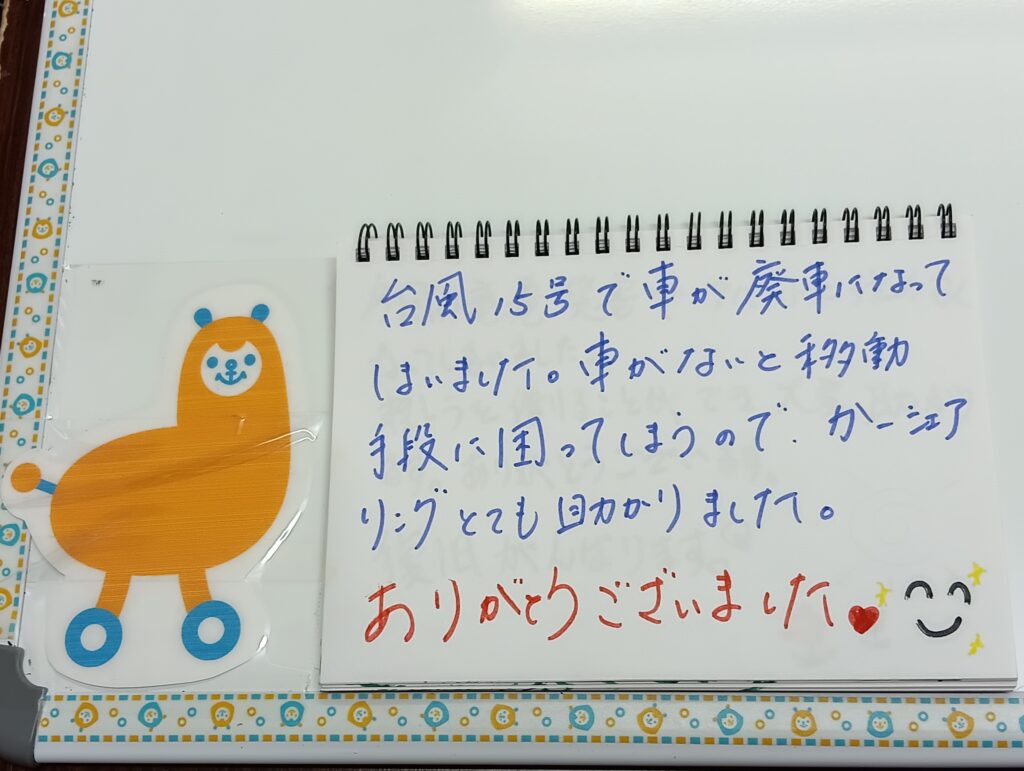 台風15号で車が廃車になって
しまいました。車がないと移動
手段に困ってしまうので、カーシェア
リングとても助かりました。
ありがとうございました